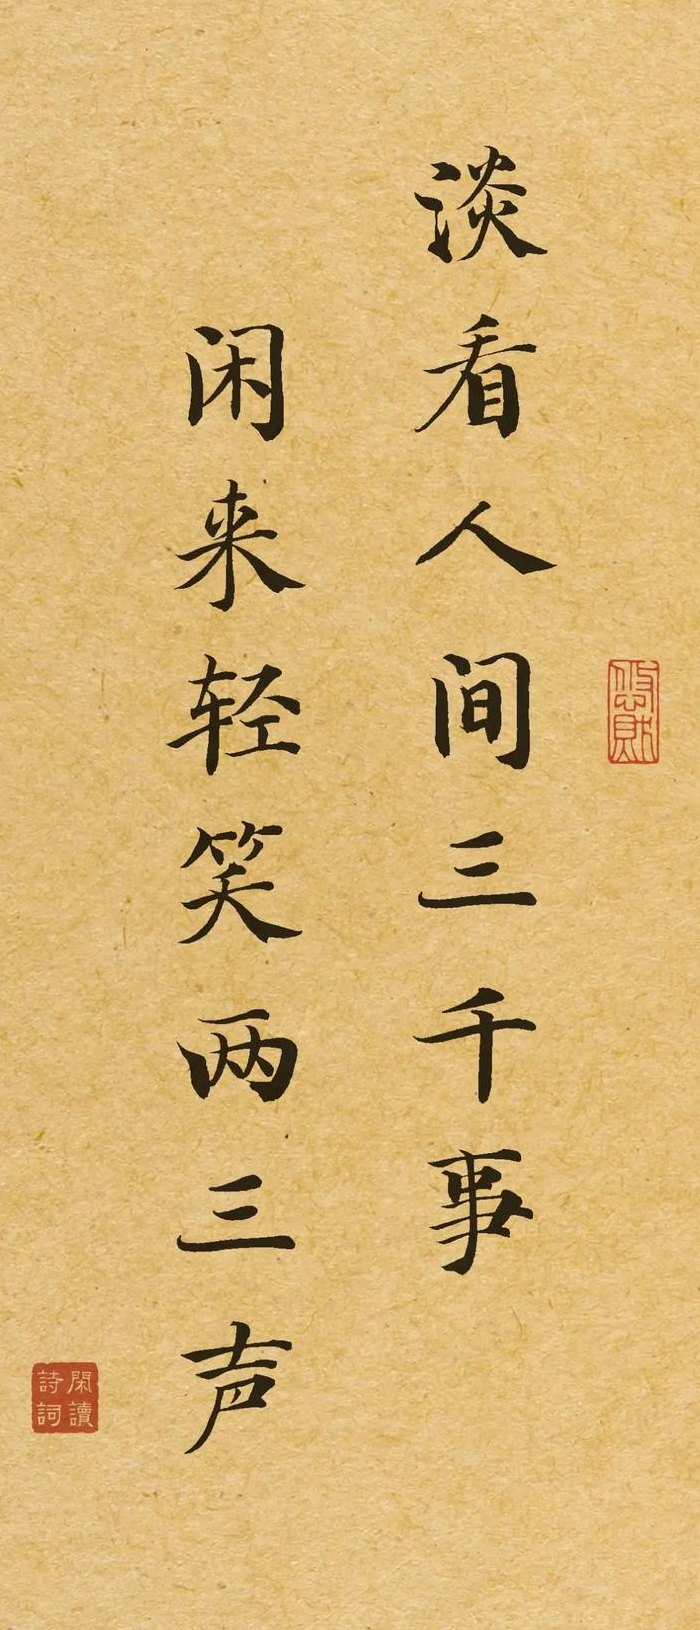 淡看人间三千事
闲来轻笑两三声
閑讀
詩詞